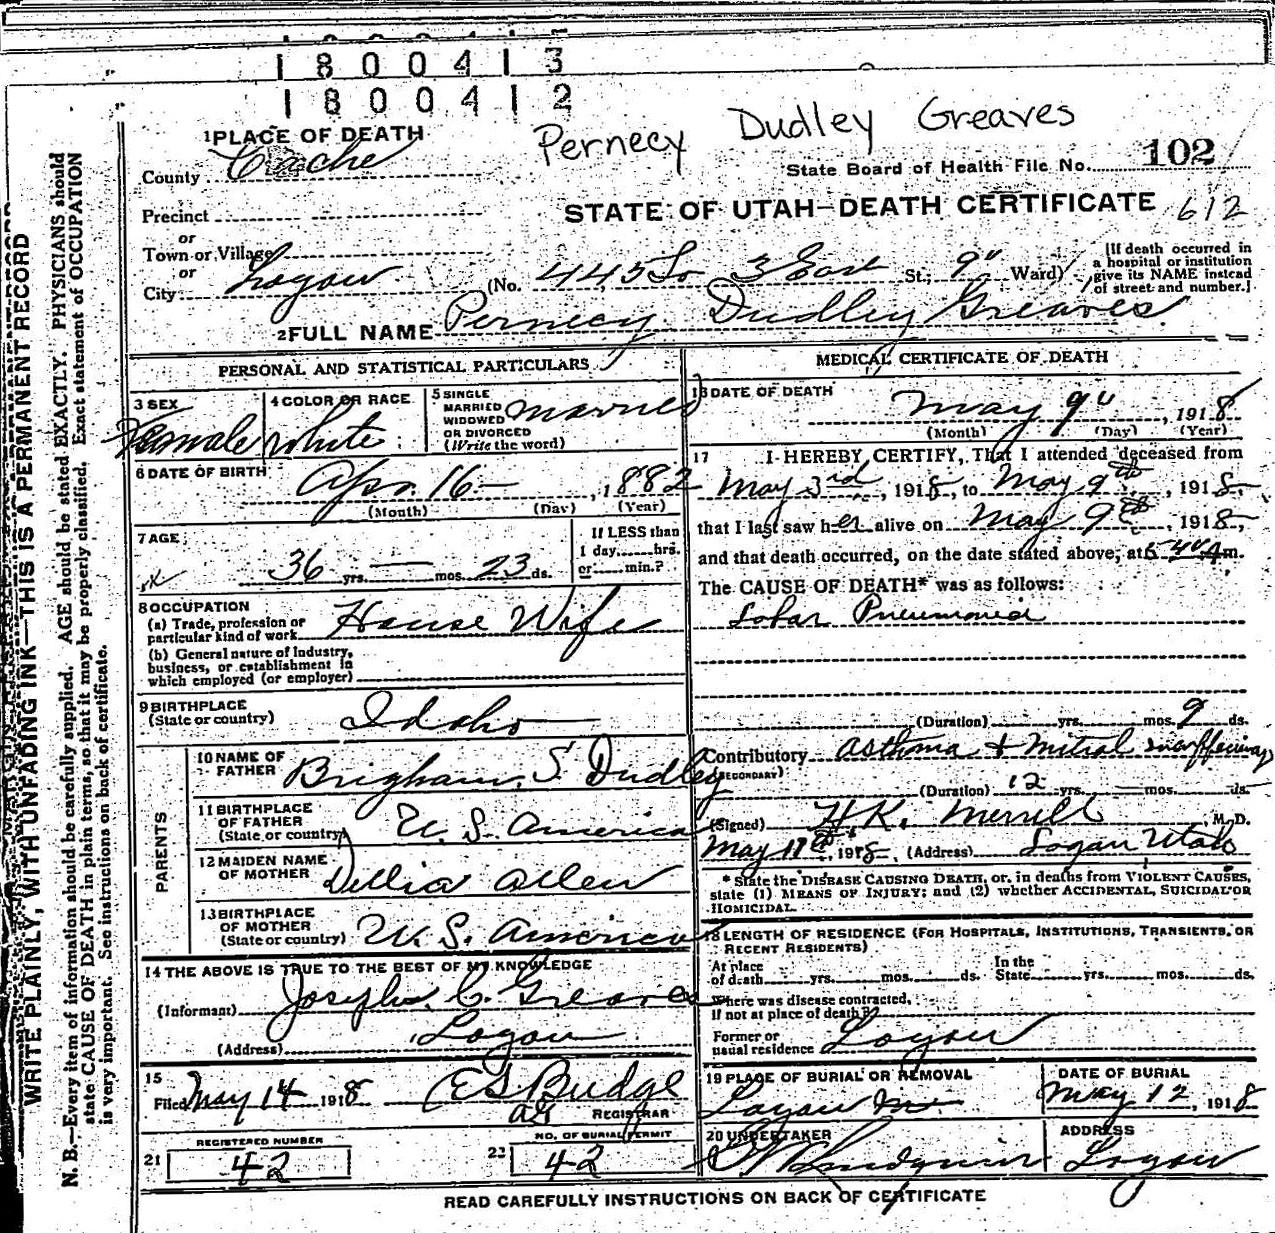 1800413
1800412
Pernecy Dudley Greaves
1 PLACE OF DEATH
County Cache
State Board of Health File No. 102
Precinct
STATE OF UTAH—DEATH CERTIFICATE 612
or
Town or Village
or
City Logan
(No. 445 So 3 East St.; 9" Ward)
[If death occurred in
a hospital or institution
give its NAME instead
of street and number.]
2 FULL NAME Pernecy Dudley Greaves
PERSONAL AND STATISTICAL PARTICULARS
3 SEX
Female
4 COLOR OR RACE
White
5 SINGLE
MARRIED
WIDOWED
OR DIVORCED
(Write the word)
Married
6 DATE OF BIRTH
Apr. 16 — , 1882
(Month) (Day) (Year)
7 AGE
36 yrs. — mos. 23 ds.
If LESS than
1 day......hrs.
or......min.?
8 OCCUPATION
(a) Trade, profession or
particular kind of work House Wife
(b) General nature of Industry,
business, or establishment in
which employed (or employer)
9 BIRTHPLACE
(State or country) Idaho
PARENTS
10 NAME OF
FATHER Brigham S. Dudley
11 BIRTHPLACE
OF FATHER
(State or country) U. S. America
12 MAIDEN NAME
OF MOTHER Dellia Allen
13 BIRTHPLACE
OF MOTHER
(State or country) U. S. America
14 THE ABOVE IS TRUE TO THE BEST OF MY KNOWLEDGE
(Informant) Joseph C. Greaves
(Address) Logan
15
Filed May 14 1918 E S Budge
REGISTRAR
REGISTERED NUMBER
21 42
NO. OF BURIAL PERMIT
22 42
MEDICAL CERTIFICATE OF DEATH
16 DATE OF DEATH
May 9" , 1918
(Month) (Day) (Year)
17 I HEREBY CERTIFY, That I attended deceased from
May 3rd , 1918, to May 9th , 1918,
that I last saw her alive on May 9th , 1918,
and that death occurred, on the date stated above, at m.
The CAUSE OF DEATH* was as follows:
Lobar Pneumonia
(Duration) yrs. mos. 9 ds.
Contributory Asthma & Mitral
(SECONDARY)
(Duration) 12 yrs. — mos. ds.
(Signed) H.K. Merrill, M.D.
May 11th, 1918 (Address) Logan Utah
* State the DISEASE CAUSING DEATH, or, in deaths from VIOLENT CAUSES,
state (1) MEANS OF INJURY; and (2) whether ACCIDENTAL, SUICIDAL OR
HOMICIDAL.
18 LENGTH OF RESIDENCE (FOR HOSPITALS, INSTITUTIONS, TRANSIENTS, OR
RECENT RESIDENTS)
At place
of death yrs. mos. ds.
In the
State yrs. mos. ds.
Where was disease contracted,
if not at place of death?
Former or
usual residence Logan
19 PLACE OF BURIAL OR REMOVAL
Logan
DATE OF BURIAL
May 12, 1918
20 UNDERTAKER
ADDRESS
Logan
READ CAREFULLY INSTRUCTIONS ON BACK OF CERTIFICATE
WRITE PLAINLY, WITH UNFADING INK—THIS IS A PERMANENT RECORD
N. B.—Every item of information should be carefully supplied. AGE should be stated EXACTLY. PHYSICIANS should
state CAUSE OF DEATH in plain terms, so that it may be properly classified. Exact statement of OCCUPATION
is very important. See instructions on back of certificate.